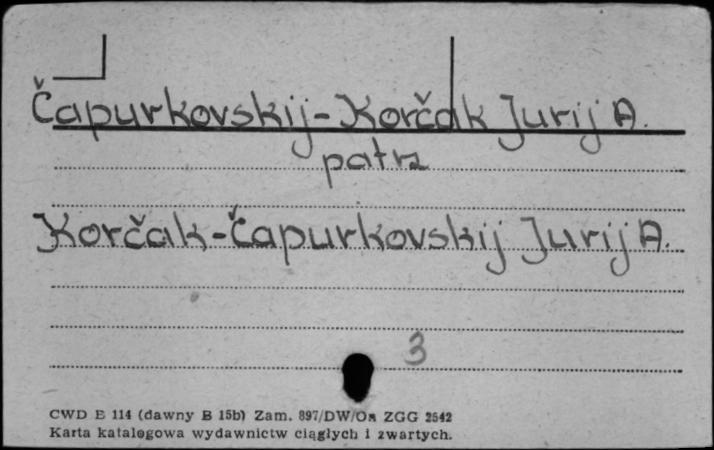 Čapurkovskij-Korčak Jurij A.
patrz
Korčak-Čapurkovskij Jurij A.
3
CWD E 114 (dawny B 15b) Zam. 897/DW/Oa ZGG 2542
Karta katalogowa wydawnictw ciągłych i zwartych.